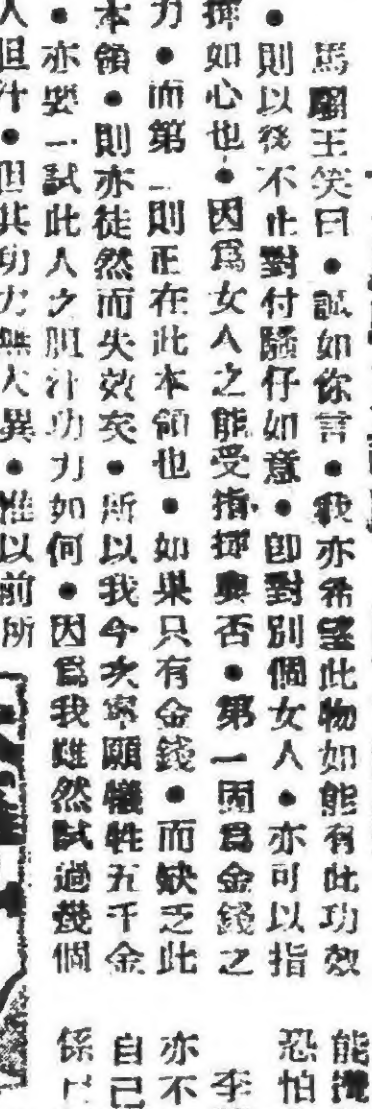 馬騮王笑曰●誠如你言●我亦希望此物如能有此功效
●則以後不止對付騷仔如意●卽對別個女人●亦可以指
揮如心也●因爲女人之能受指揮與否●第一因爲金錢之
力●而第一則正在此本領也●如果只有金錢●而缺乏此
本領●則亦徒然而失效矣●所以我今次寧願犧牲五千金
●亦要一試此人之胆汁功力如何●因爲我雖然試過幾個
人但汁●但其功力無大異●惟以前所
能
恐怕
李
亦不
自己
係